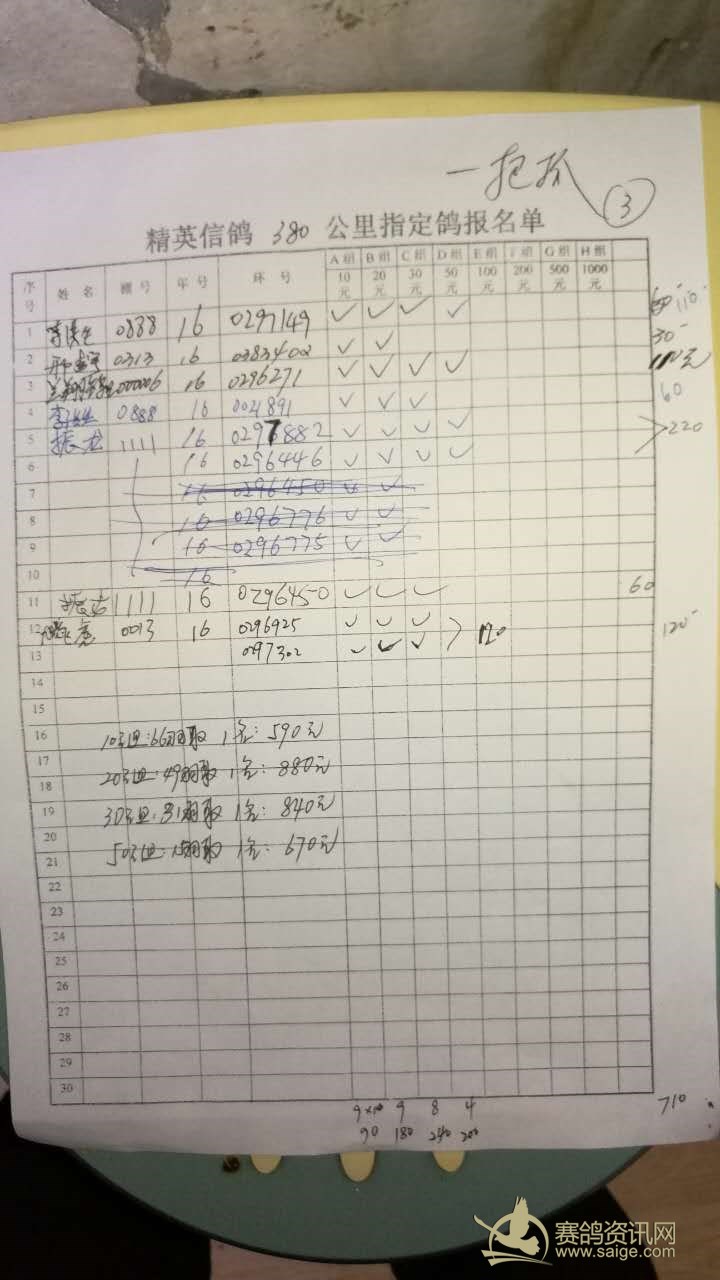 一把抓 ③
精英信鸽 380 公里指定鸽报名单
序号 姓名 棚号 年号 环号 A组 10元 B组 20元 C组 30元 D组 50元 E组 100元 F组 200元 G组 500元 H组 1000元
1 0888 16 0297149 ✓ ✓ ✓ ✓ 110
2 0313 16 0383402 ✓ ✓ 30
3 00006 16 0296271 ✓ ✓ ✓ ✓
4 0888 16 0021891 ✓ ✓ ✓ 60
5 振龙 1111 16 0297882 ✓ ✓ ✓ ✓ 220
6 16 0296446 ✓ ✓ ✓ ✓
7 16 0296450 ✓ ✓
8 16 0296776 ✓ ✓
9 16 0296775 ✓ ✓
10 16
11 振龙 1111 16 0296450 ✓ ✓ ✓ 60
12 0013 16 0296925 ✓ ✓ ✓ 120 120
13 0297302 ✓ ✓ ✓
14
15
16 10元组:66羽取1名:590元
17
18 20元组:49羽取1名:880元
19 30元组:31羽取1名:840元
20
21 50元组:15羽取1名:670元
22
23
24
25
26
27
28
29
30
9×10 9 8 4 710
90 180 240 200
赛鸽资讯网
www.saige.com